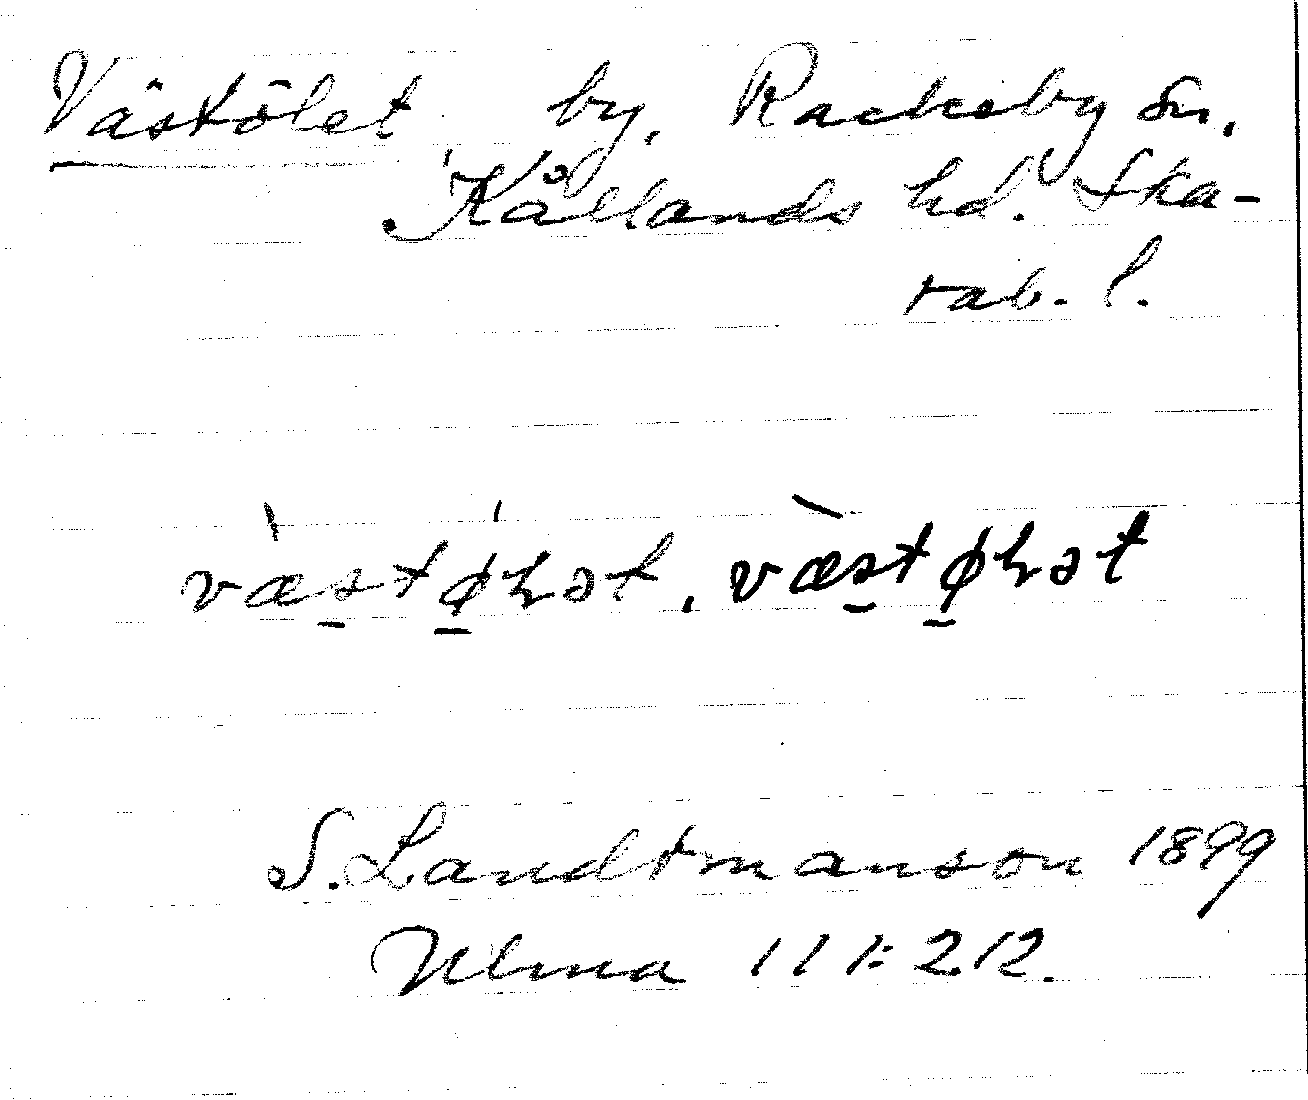 Västölet by, Rackeby sn.
Kållands hd. Ska-
rab. l.
væstøhət, væstøhət
S. Landtmanson 1899
Ulma 111:212.